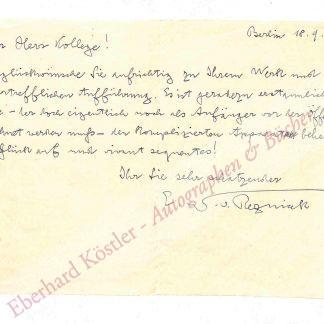 Berlin 18.9.
r Herr Kollege!
glückwünsche Sie aufrichtig zu Ihrem Werk und
rtrefflichen Aufführung. Es ist geradezu erstaunlich
- der doch eigentlich noch als Anfänger vor der Öff
hnet werden muß - den komplizierten Apparat behe
Glück auf und vivant sequentes!
Ihr Sie sehr schätzender
E. N. v. Reznicek
Eberhard Köstler - Autographen & Bücher